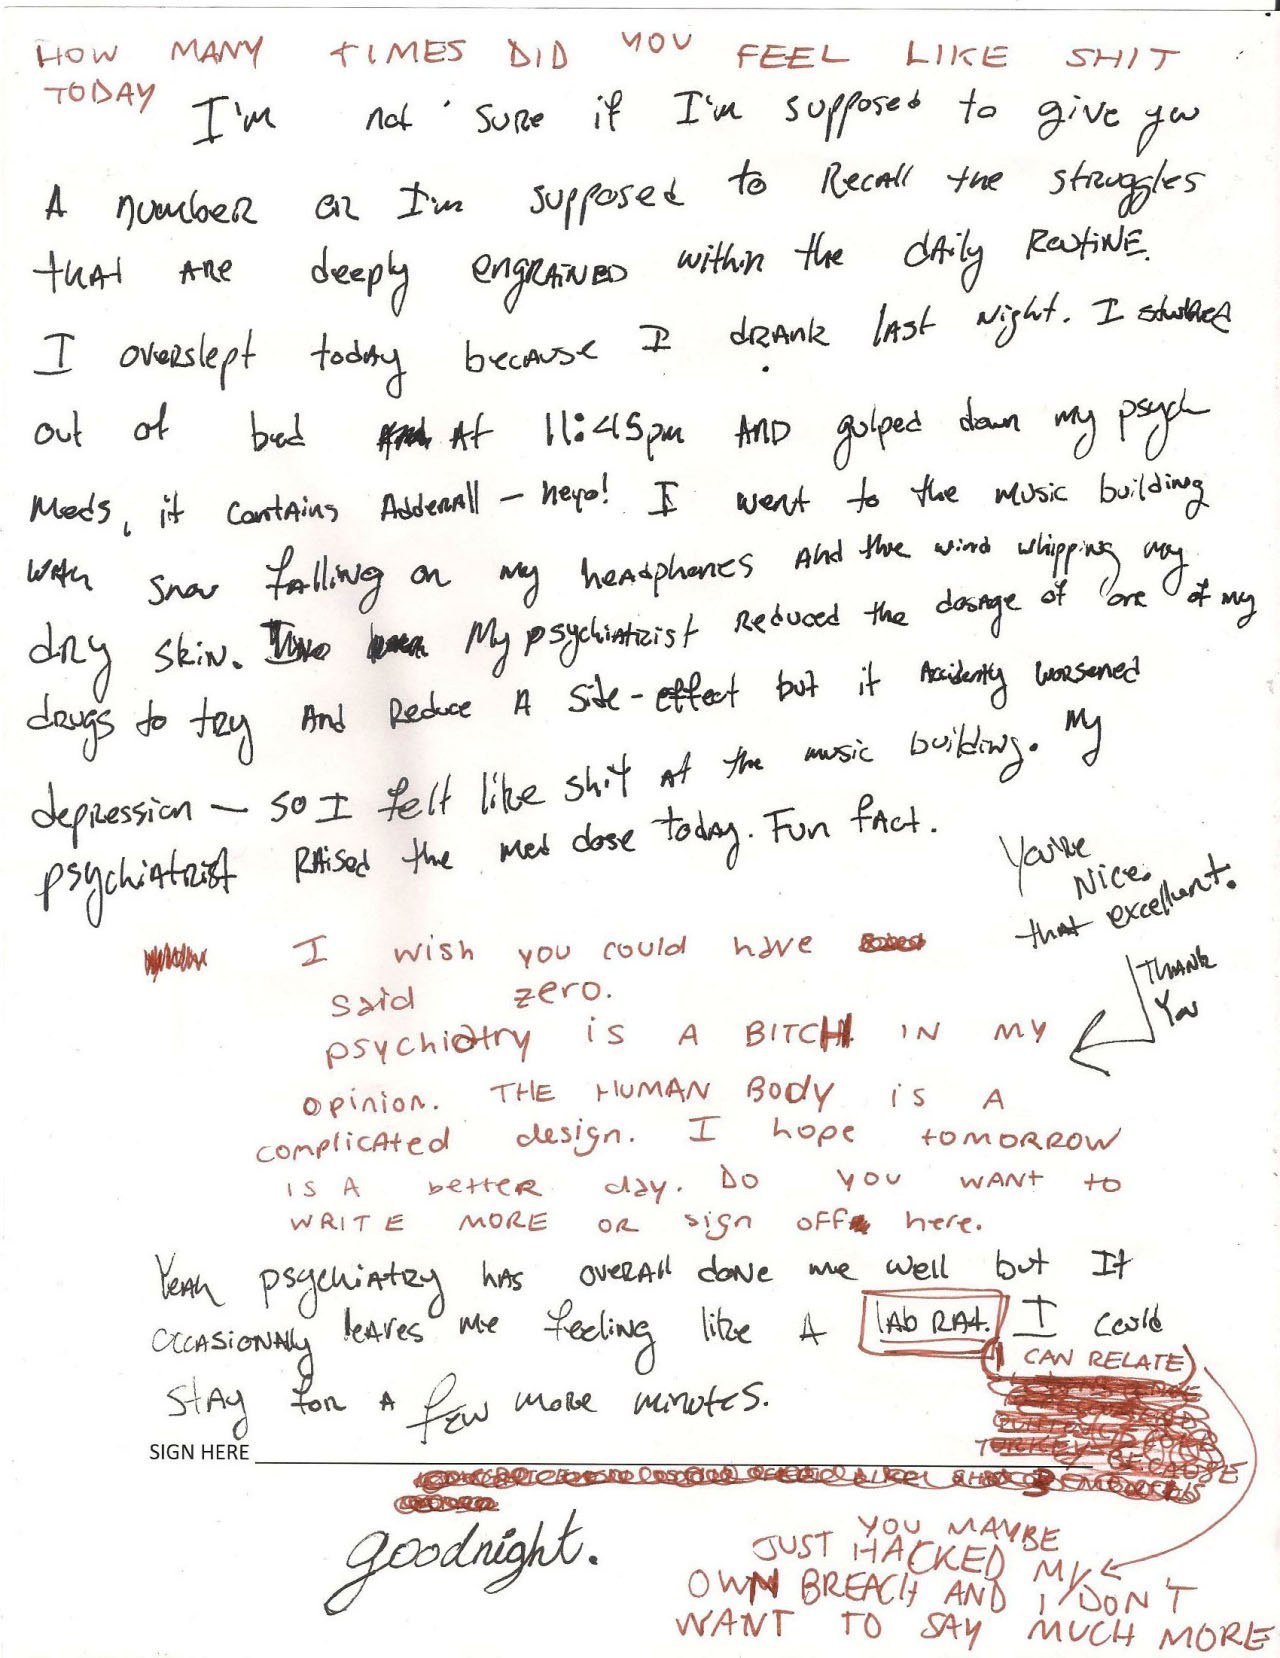 HOW MANY TIMES DID YOU FEEL LIKE SHIT
TODAY
I'm not sure if I'm supposed to give you
A number or I'm supposed to Recall the struggles
that are deeply engrained within the daily Routine.
I overslept today because I drank last night. I
out of bed At 11:45pm AND gulped down my psych
meds, it contains Adderall – heyo! I went to the music building
with snow falling on my headphones and the wind whipping my
dry skin. My psychiatrist reduced the dosage of one of my
drugs to try and Reduce A side-effect but it Accidently worsened
depression — so I felt like shit at the music building. My
psychiatrist raised the med dose today. Fun fact.
You're
Nice.
that excellent.
Thank
You
I wish you could have
said zero.
psychiatry is A BITCH IN MY
opinion. THE HUMAN Body is A
complicated design. I hope tomorrow
IS A better day. DO YOU WANT to
WRITE MORE OR sign off here.
Yeah psychiatry has overall done me well but It
occasionally leaves me feeling like A lab rat. I could
(I CAN RELATE)
stay for a few more minutes.
SIGN HERE
goodnight.
YOU MAYBE
JUST HACKED MY
OWN BREACH AND I DON'T
WANT TO SAY MUCH MORE